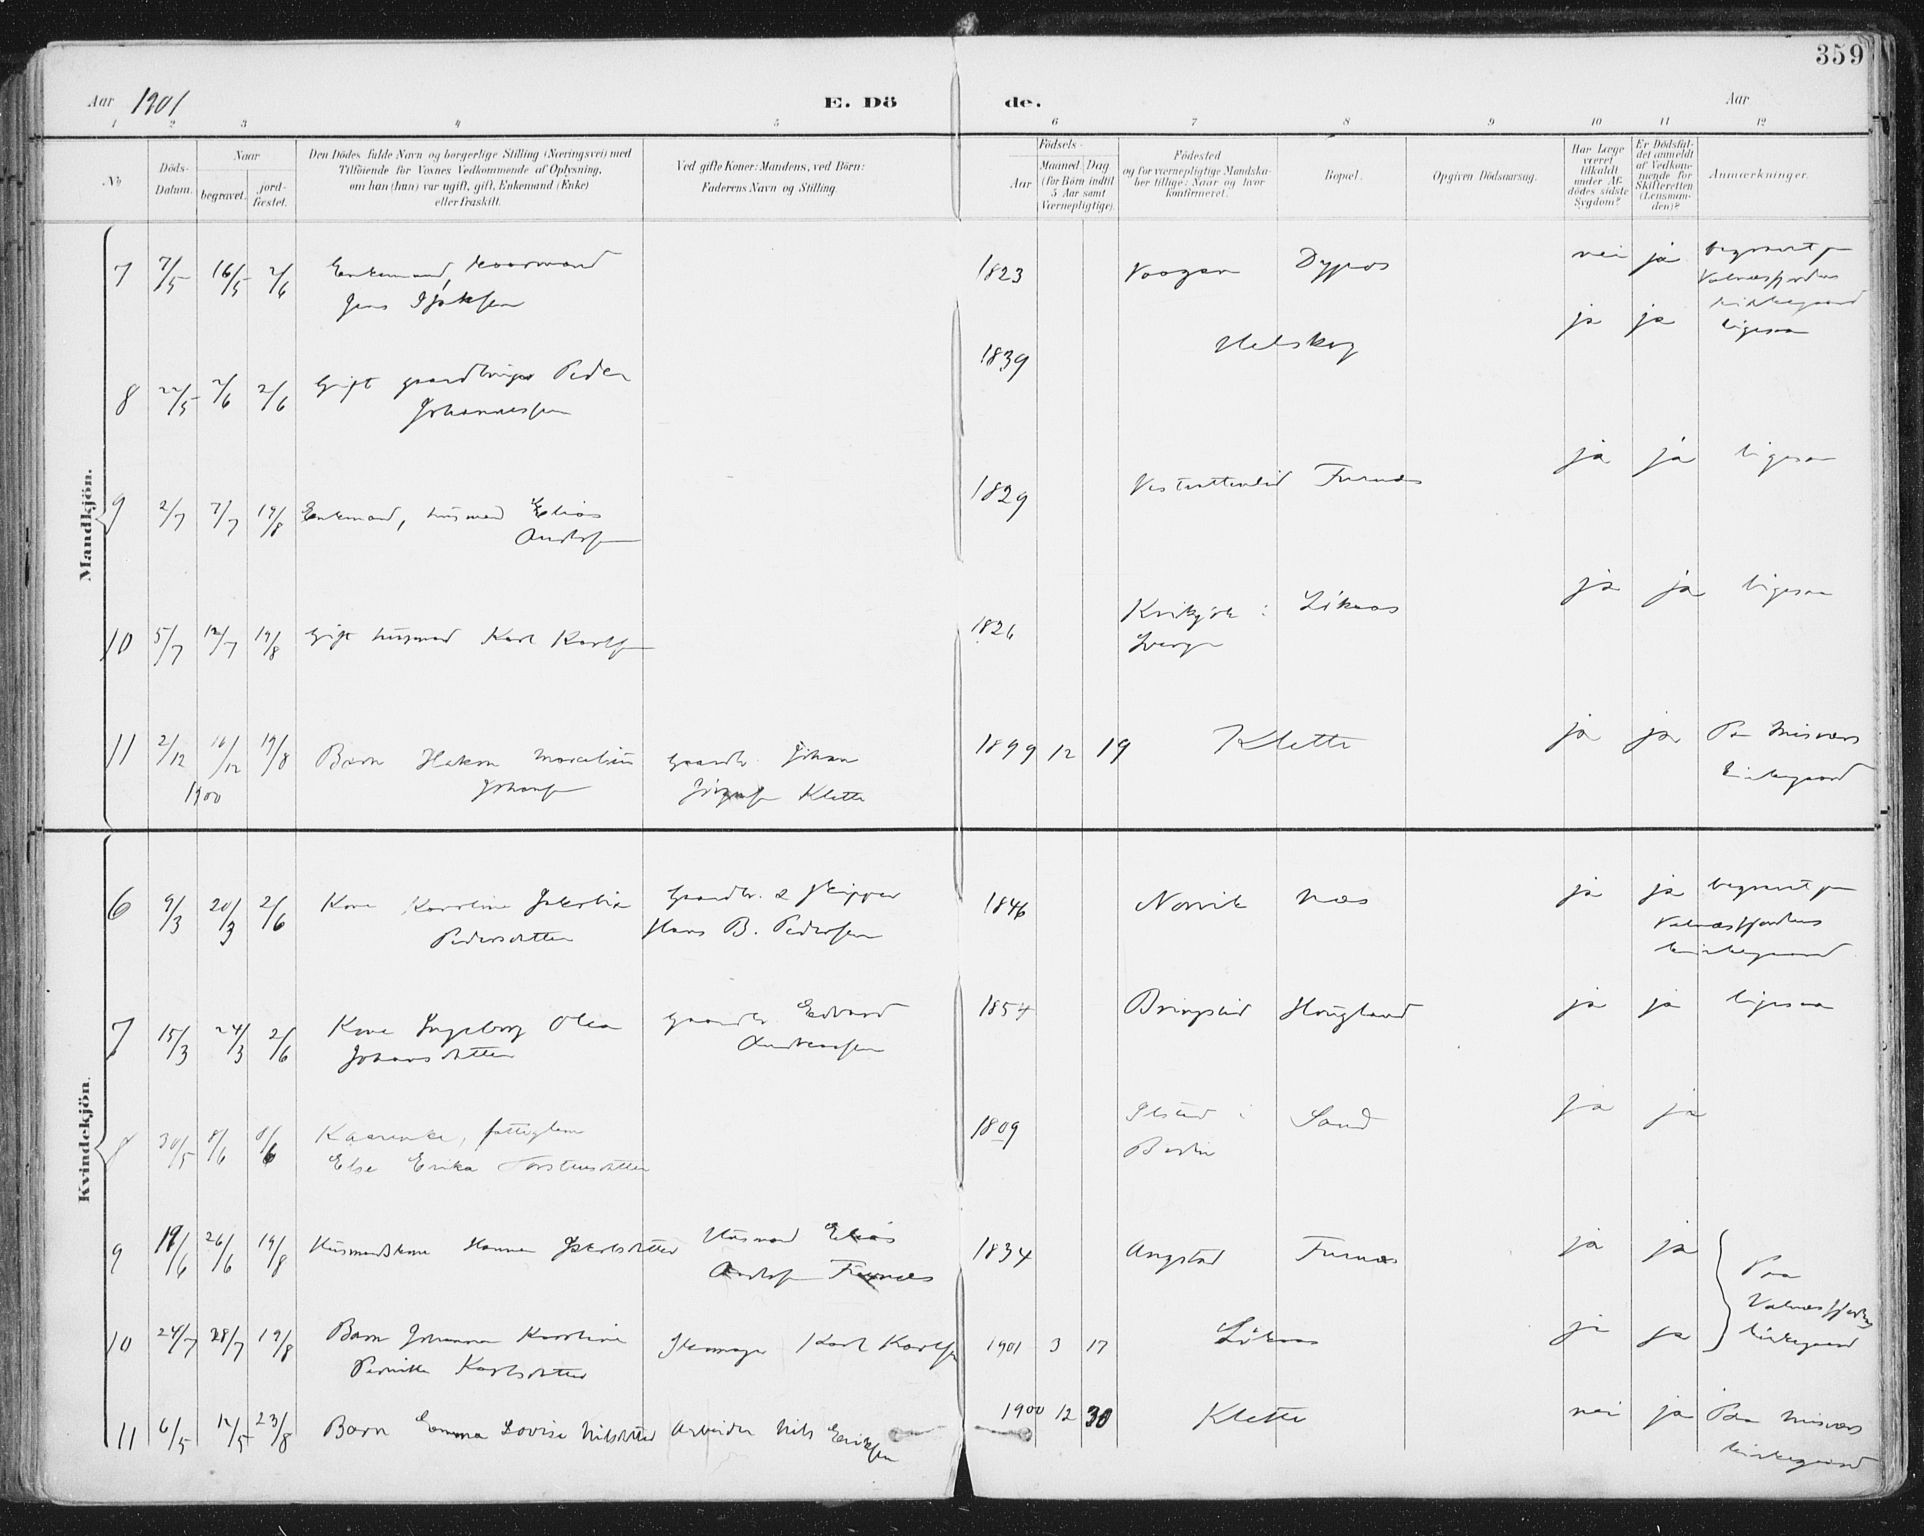 359
Aar 1901 E. Dö de. Aar
1 2 3 4 5 6 7 8 9 10 11 12
No
Döds-
Datum.
Naar
begravet.
jord-
fæstet.
Den Dödes fulde Navn og borgerlige Stilling (Næringsvei) med
Tilföiende for Voxnes Vedkommende af Oplysning,
om han (hun) var ugift, gift, Enkemand (Enke)
eller fraskilt.
Ved gifte Koner: Mandens, ved Börn:
Faderens Navn og Stilling.
Födsels-
Aar
Maaned Dag
(for Börn indtil
5 Aar samt
Værnepligtige).
Födested
og for værnepligtige Mandska-
ber tillige: Naar og hvor
konfirmeret.
Bopæl.
Opgiven Dödsaarsag.
Har Læge
været
tilkaldt
under Af-
dödes sidste
Sygdom?
Er Dödsfal-
det anmeldt
af Vedkom-
mende for
Skifteretten
(Lensman-
den)?
Anmærkninger.
Mandkjön.
7 7/5 16/5 2/6 Enkemand, kaarmand 1823 Vaagan Dypos nei ja begravet paa
Jens Valnæsfjordens
kirkegaard
8 22/5 2/6 2/6 Gift gaardbruger Peder 1839 ja ja ligesaa
Johannessen
9 2/7 7/7 19/8 Enkemand, husmand Elias 1829 Furnæs ja ja ligesaa
10 5/7 12/7 19/8 Gift husmand Karl Karlsen 1826 Kvikjok i Löknes ja ja ligesaa
Sverge
11 2/12 16/12 19/8 Barn Hakon Marcelius Gaardbr. Johan 1899 12 19 Klette ja ja Paa Misvær
1900 Johansen Klette Kirkegaard
Kvindekjön.
6 9/3 20/3 2/6 Kone Karoline Jakobia Gaardbr. & skipper 1846 Norvik Næs ja ja begravet paa
Pedersdatter Hans B. Pedersen Valnæsfjordens
kirkegaard
7 15/3 24/3 2/6 Kone Ingeborg Olea Gaardbr. Edvard 1854 Bringslid Hougland ja ja ligesaa
Johansdatter Andreassen
8 30/5 8/6 8/6 Kaarenke, fattiglem 1809 i Sand ja ja
Else Erika Torstensdatter Bodin
9 19/6 26/6 19/8 Husmandskone Hanna Jakobsdatter Husmand Elias 1834 Angstad Furnæs ja ja Paa
Furnæs
10 24/7 28/7 19/8 Barn Johanna Karoline Karl Karlsen 1901 3 17 Löknes ja ja Valnæsfjordens
Pernille Karlsdatter kirkegaard
11 6/5 12/5 23/8 Barn Emma Lovise Nilsdatter Arbeider Nils Eriksen 1900 12 30 Klette nei ja Paa Misvær
kirkegaard